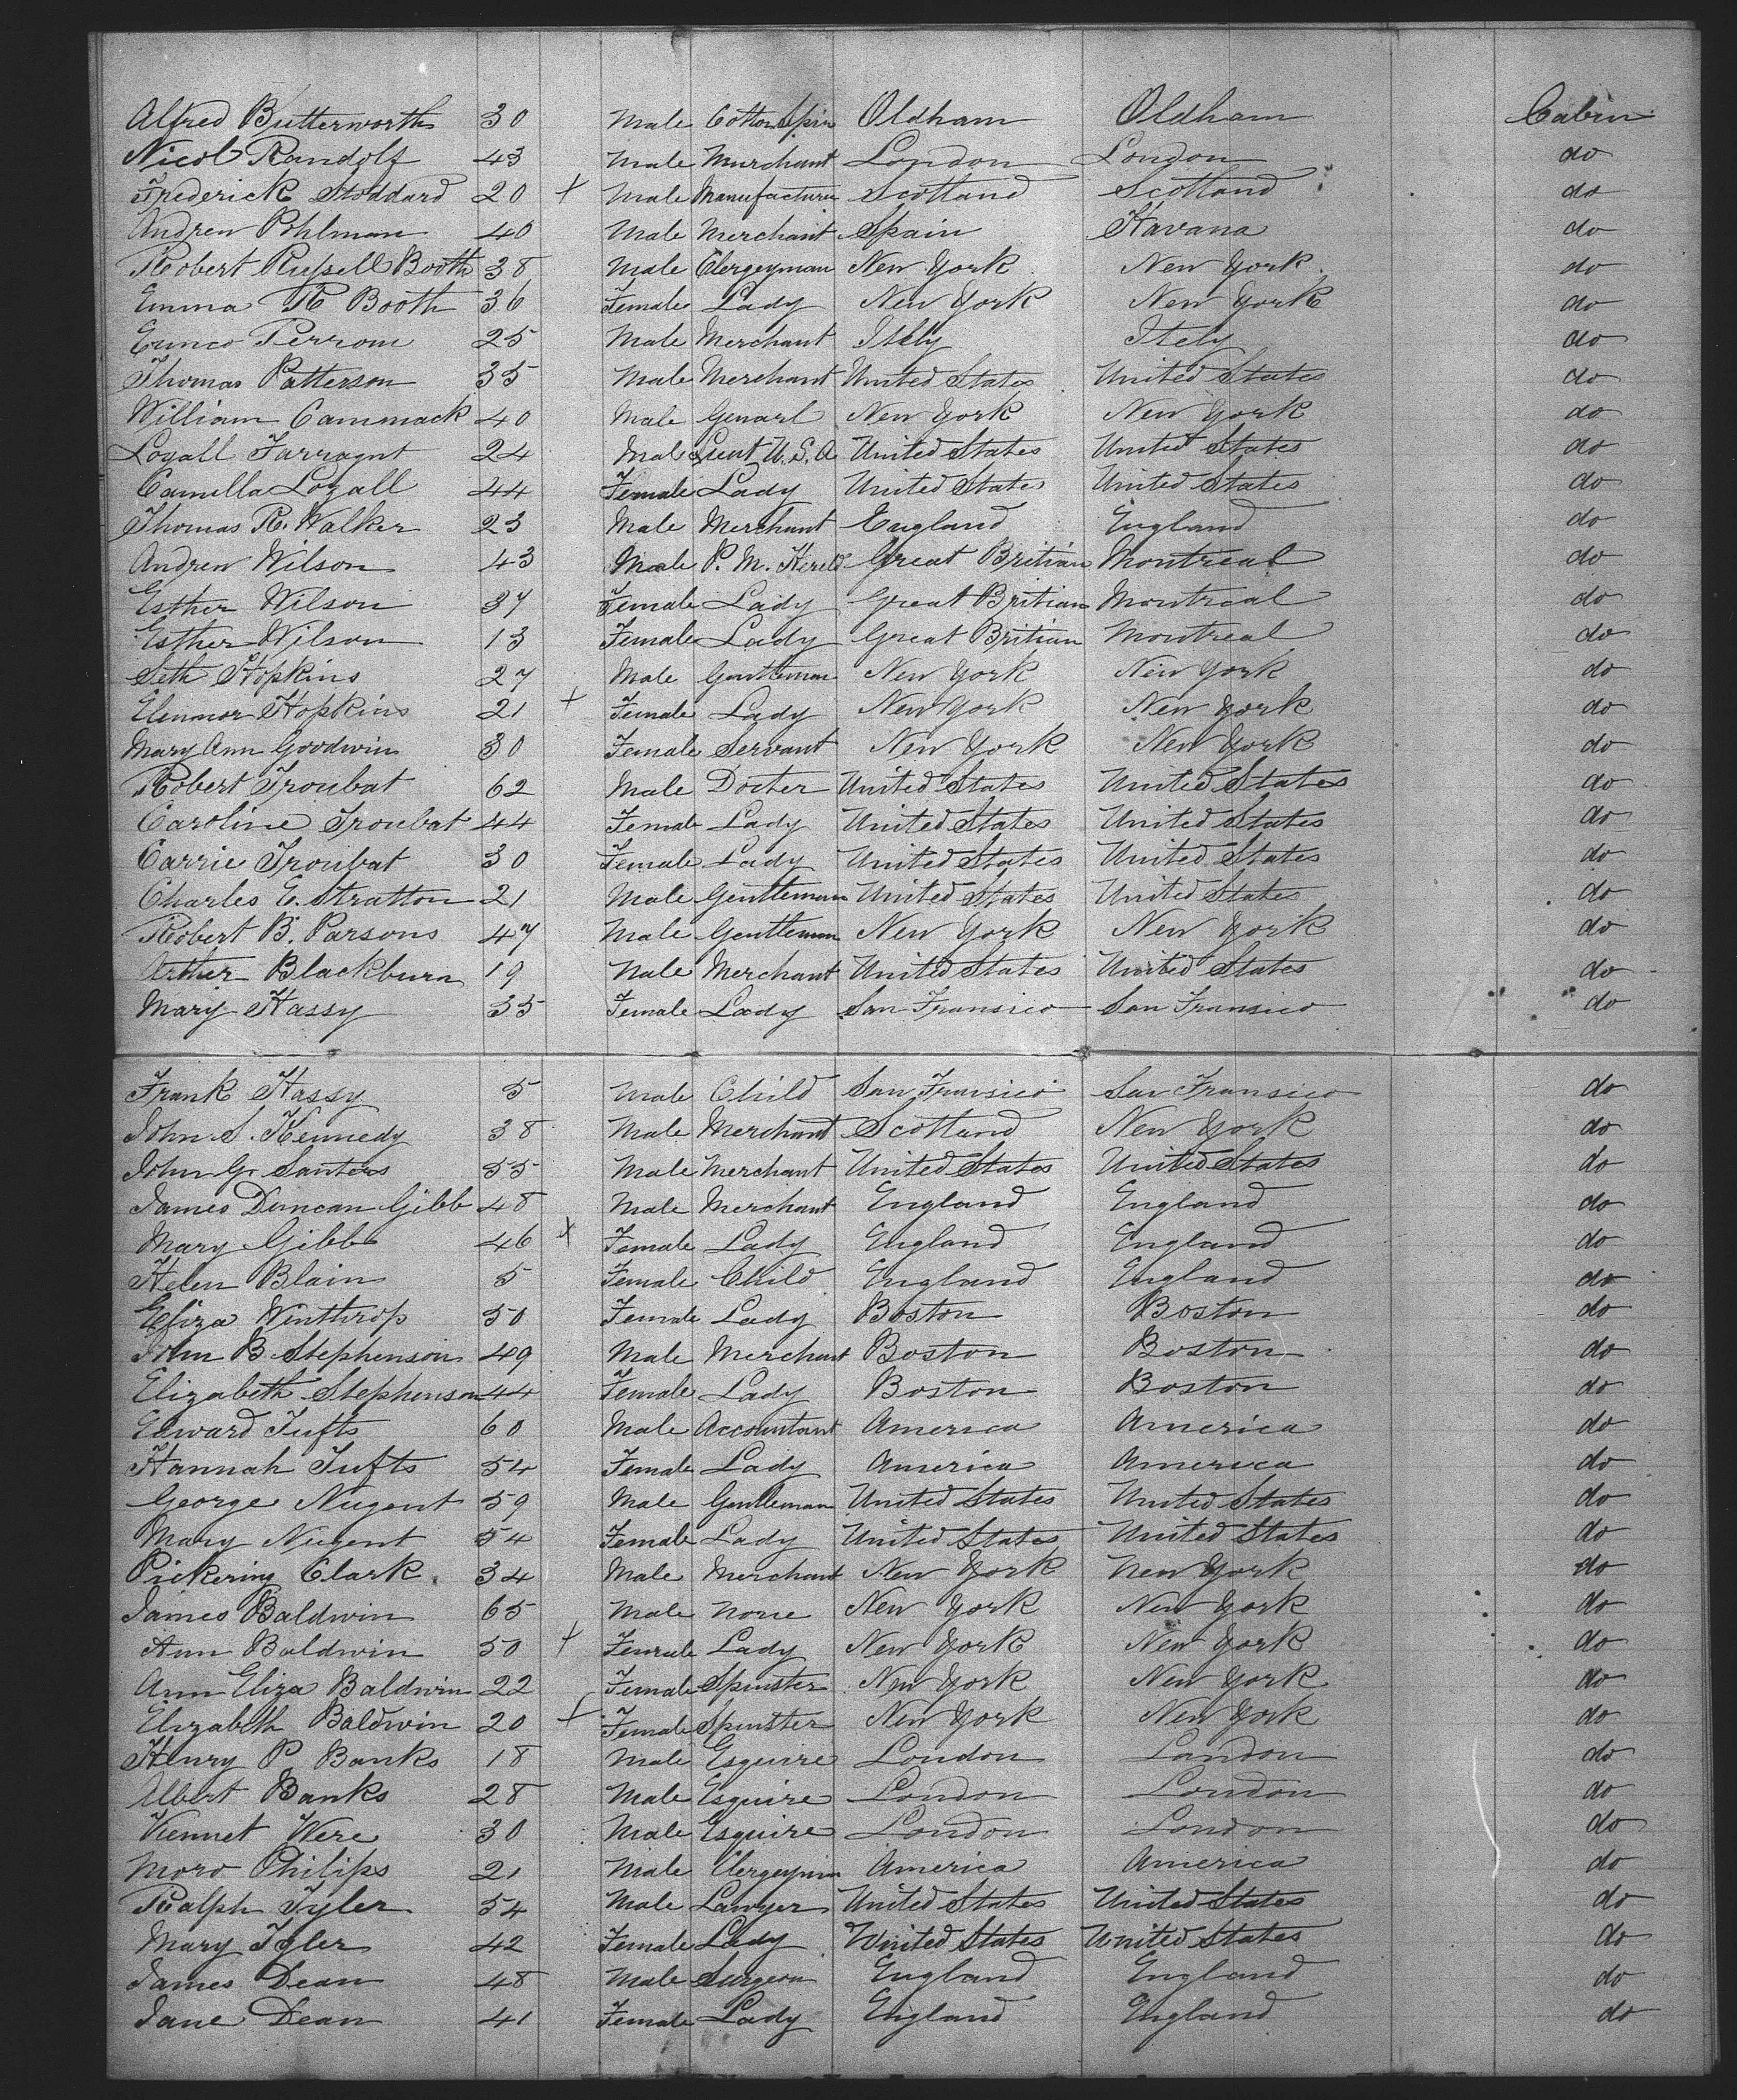 Alfred Butterworth 30 Male Cotton Spin Oldham Oldham Cabin
Nicol Randolf 43 Male Murchant London London do
Frederick Stoddard 20 + Male Manufacturer Scotland Scotland do
Andrew Pohlman 40 Male Merchant Spain Havana do
Robert Russell Booth 38 Male Clergeyman New York New York do
Emma R Booth 36 Female Lady New York New York do
Perrom 25 Male Merchant Itely Itely do
Thomas Patterson 35 Male Merchant United States United States do
William Cammack 40 Male Genarl New York New York do
Loyall Farragut 24 Male Lieut U.S.A United States United States do
Camilla Loyall 44 Female Lady United States United States do
Thomas R. Walker 23 Male Merchant England England do
Andrew Wilson 43 Male P. M. Hereld Great Britian Montreal do
Esther Wilson 37 Female Lady Great Britian Montreal do
Esther Wilson 13 Female Lady Great Britian Montreal do
Seth Hopkins 27 Male Gentleman New York New York do
Elennor Hopkins 21 + Female Lady New York New York do
Mary Ann Goodwin 30 Female Servant New York New York do
Robert Troubat 62 Male Docter United States United States do
Caroline Troubat 44 Female Lady United States United States do
Carrie Troubat 30 Female Lady United States United States do
Charles E. Stratton 21 Male Gentleman United States United States do
Robert B. Parsons 47 Male Gentleman New York New York do
Arther Blackburn 19 Male Merchant United States United States do
Mary Hassy 35 Female Lady San Fransico San Fransico do
Frank Hassy 5 Male Child San Fransico San Fransico do
John S. Kennedy 38 Male Merchant Scotland New York do
John G. Santers 55 Male Merchant United States United States do
James Duncan Gibb 48 Male Merchant England England do
Mary Gibb 46 + Female Lady England England do
Helen Blain 5 Female Child England England do
Eliza Winthrop 50 Female Lady Boston Boston do
John B Stephenson 49 Male Merchant Boston Boston do
Elizabeth Stephenson 44 Female Lady Boston Boston do
Edward Tufts 60 Male Accountant America America do
Hannah Tufts 54 Female Lady America America do
George Nugent 59 Male Gentleman United States United States do
Mary Nugent 54 Female Lady United States United States do
Pickering Clark 34 Male Merchant New York New York do
James Baldwin 65 Male None New York New York do
Ann Baldwin 50 + Female Lady New York New York do
Ann Eliza Baldwin 22 Female Spinster New York New York do
Elizabeth Baldwin 20 + Female Spinster New York New York do
Henry P Banks 18 Male Esquire London London do
Albert Banks 28 Male Esquire London London do
Kennet Were 30 Male Esquire London London do
Moro Philips 21 Male Clergeyman America America do
Ralph Tyler 54 Male Lawyer United States United States do
Mary Tyler 42 Female Lady United States United States do
James Dean 48 Male Surgeon England England do
Jane Dean 41 Female Lady England England do